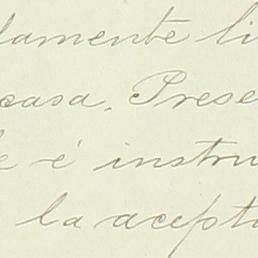 lamente li
casa. Prese
e é instru
la acepto